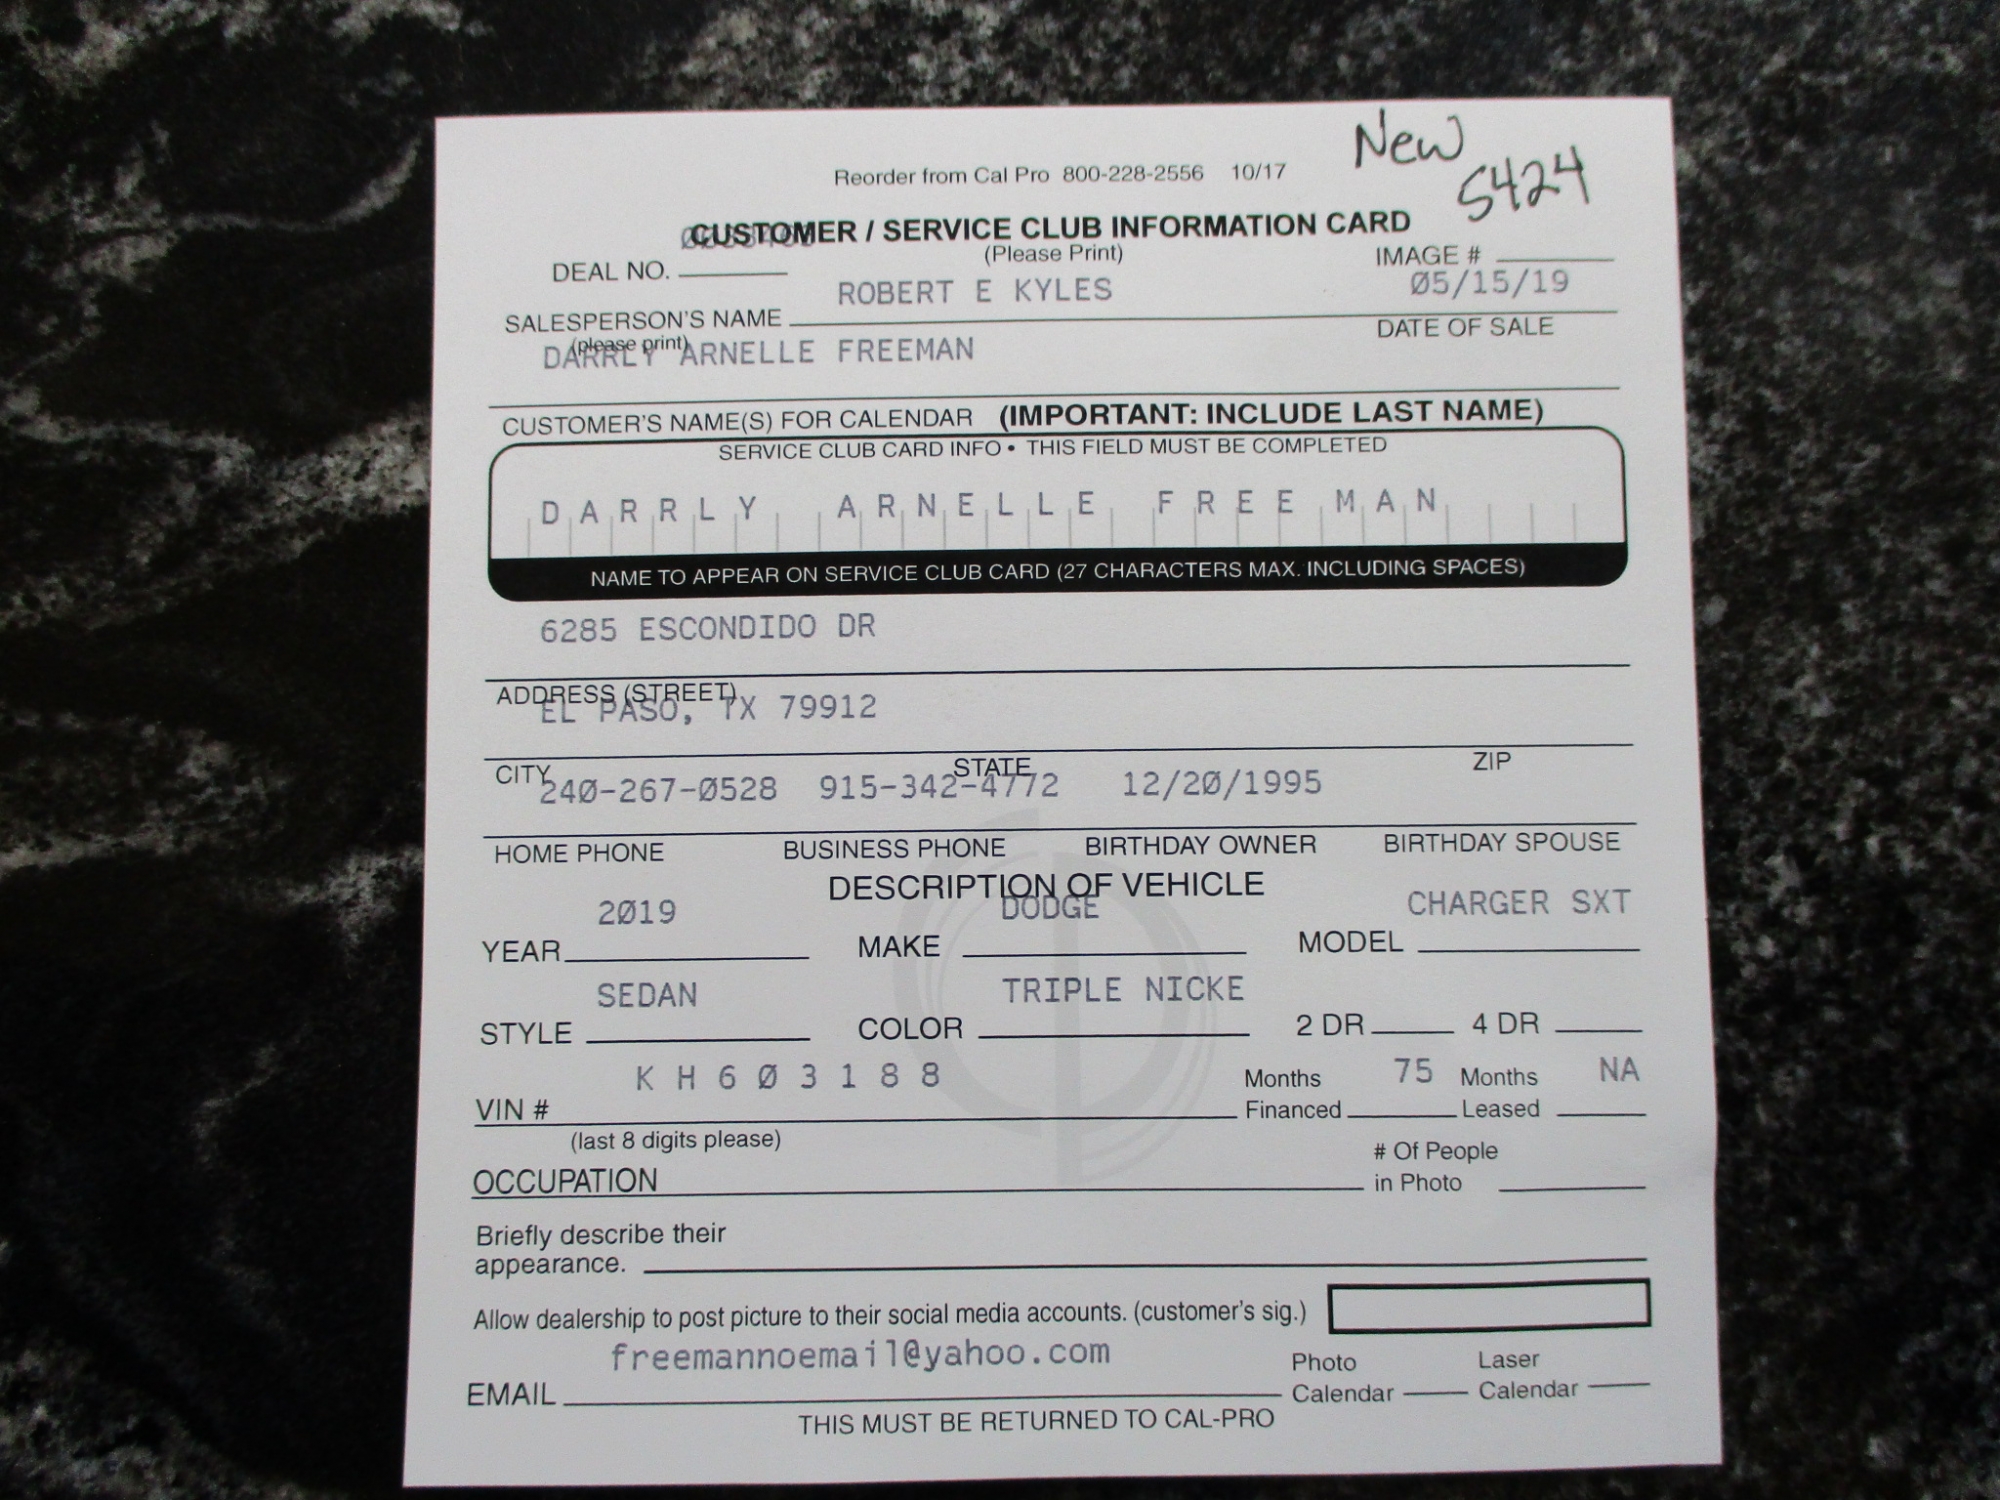 New
5424
Reorder from Cal Pro 800-228-2556 10/17
CUSTOMER / SERVICE CLUB INFORMATION CARD
(Please Print)
DEAL NO.
IMAGE #
ROBERT E KYLES
Ø5/15/19
SALESPERSON'S NAME
DATE OF SALE
(please print)
DARRLY ARNELLE FREEMAN
CUSTOMER'S NAME(S) FOR CALENDAR (IMPORTANT: INCLUDE LAST NAME)
SERVICE CLUB CARD INFO • THIS FIELD MUST BE COMPLETED
DARRLY ARNELLE FREEMAN
NAME TO APPEAR ON SERVICE CLUB CARD (27 CHARACTERS MAX. INCLUDING SPACES)
6285 ESCONDIDO DR
ADDRESS (STREET)
EL PASO, TX 79912
CITY STATE ZIP
24Ø-267-Ø528 915-342-4772 12/2Ø/1995
HOME PHONE BUSINESS PHONE BIRTHDAY OWNER BIRTHDAY SPOUSE
DESCRIPTION OF VEHICLE
2Ø19 DODGE CHARGER SXT
YEAR MAKE MODEL
SEDAN TRIPLE NICKE
STYLE COLOR 2 DR 4 DR
K H 6 Ø 3 1 8 8 Months 75 Months NA
VIN # Financed Leased
(last 8 digits please)
# Of People
OCCUPATION in Photo
Briefly describe their
appearance.
Allow dealership to post picture to their social media accounts. (customer's sig.)
freemannoemail@yahoo.com
Photo Laser
EMAIL Calendar Calendar
THIS MUST BE RETURNED TO CAL-PRO